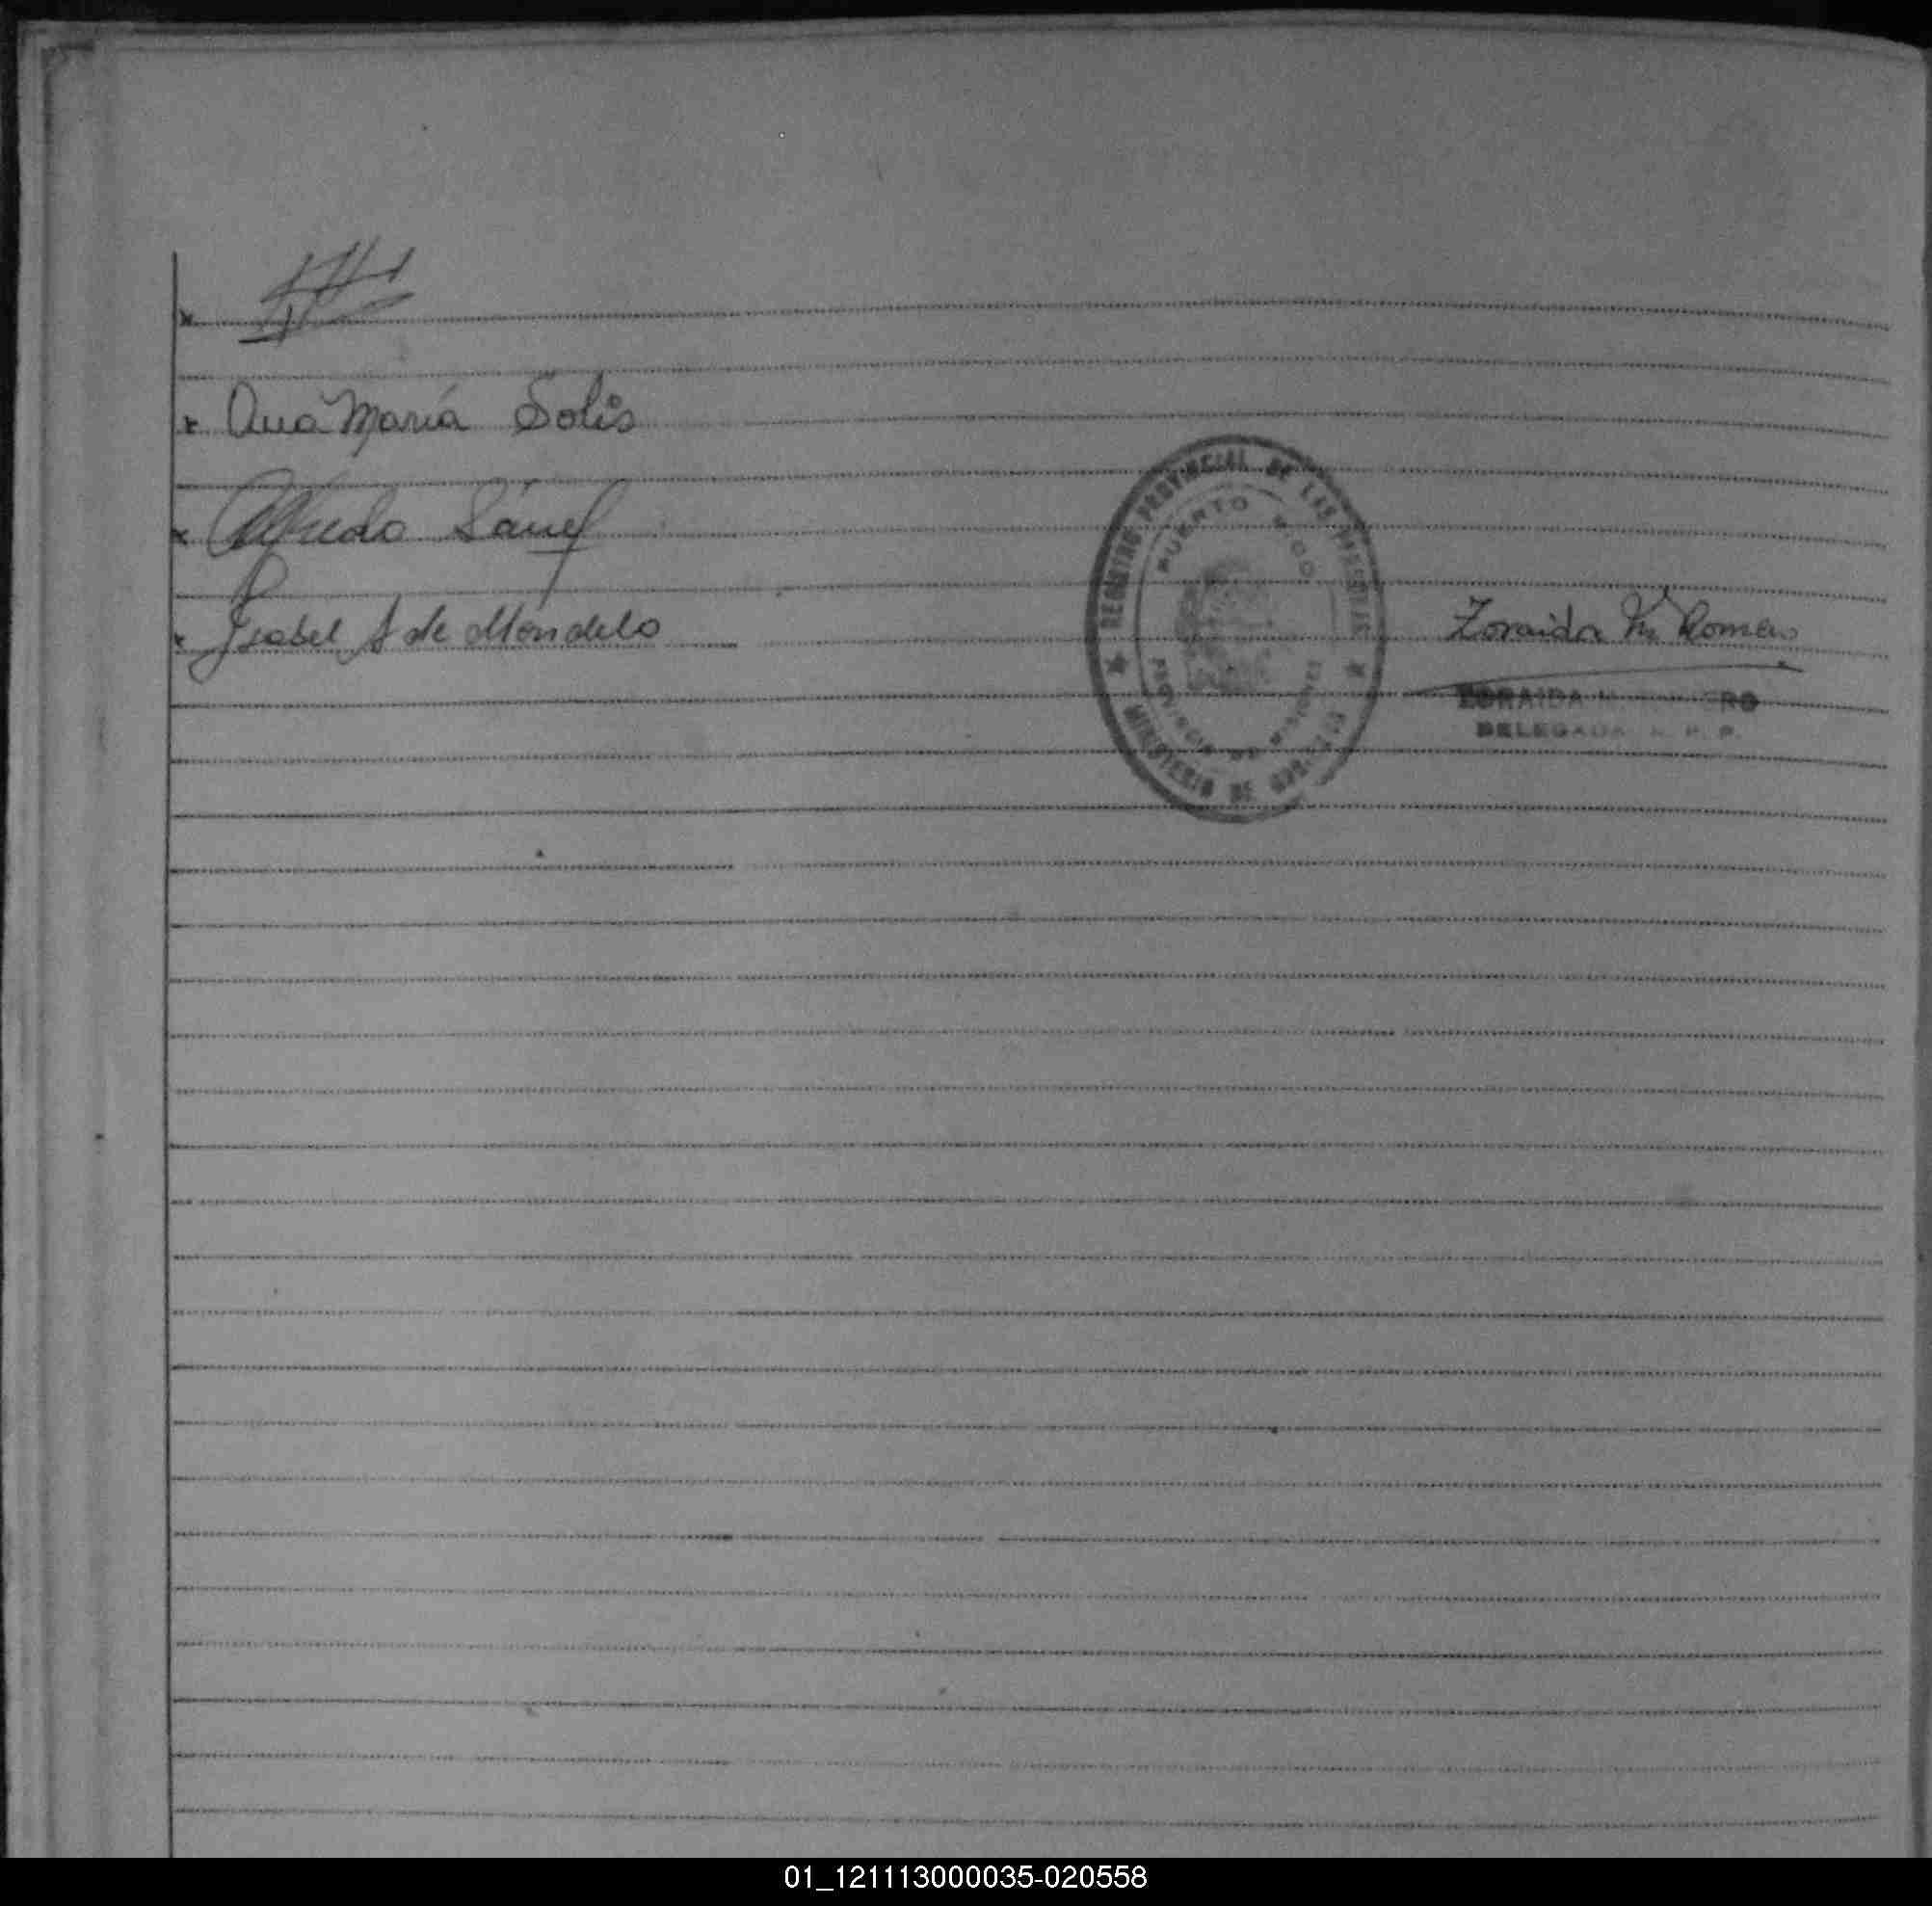 x
x Ana María Solis
x Alfredo
x Isabel A de Mondelo
REGISTRO PROVINCIAL DE LAS PERSONAS
PUERTO
PROVINCIA DE MISIONES
MINISTERIO DE
Zoraida M. Romero
ZORAIDA M. ROMERO
DELEGADA R. P. P.
01_121113000035-020558